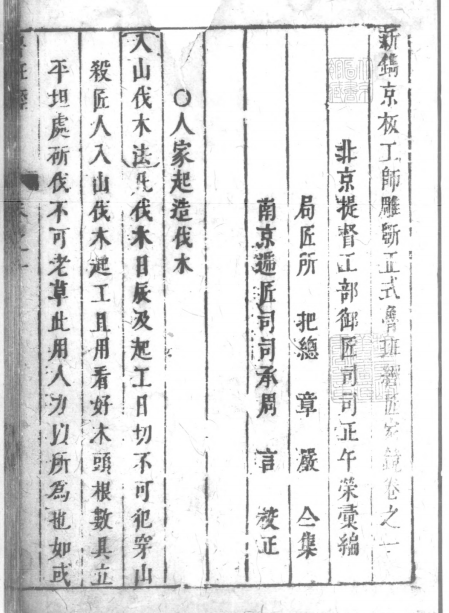 新鐫京板工師雕斲正式魯班經匠家鏡卷之一
北京提督工部御匠司司正午榮彙編
局匠所 把總 章嚴 仝集
南京遞匠司司承周 言 校正
○人家起造伐木
入山伐木法凡伐木日辰及起工日切不可犯穿山
殺匠人入山伐木起工且用看好木頭根數具立
平坦處斫伐不可老草此用人力以所為也如或